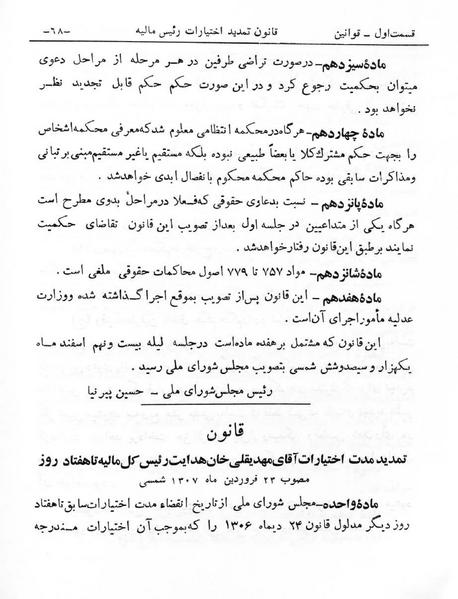 قسمت اول – قوانین قانون تمدید اختیارات رئیس مالیه –۶۸–
مادهٔ سیزدهم– درصورت تراضی طرفین در هـر مرحله از مراحل دعوی
میتوان بحکمیت رجوع کرد و در این صورت حکم حکم قابل تجدید نظر
نخواهد بود .
مادهٔ چهاردهم– هرگاه درمحکمه انتظامی معلوم شدکه معرفی محکمه اشخاص
را بجهت حکم مشترك کلا یا بعضاً طبیعی نبوده بلکه مستقیم یا غیر مستقیم مبنی بر تبانی
ومذاکرات سابقی بوده حاکم محکمه محکوم بانفصال ابدی خواهدشد .
مادهٔ پانزدهم – نسبت بدعاوی حقوقی که فعلا درمراحل بدوی مطرح است
هرگاه یکی از متداعیین در جلسه اول بعداز تصویب این قانون تقاضای حکمیت
نمایند برطبق این قانون رفتارخواهدشد .
مادهٔ شانزدهم– مواد ۷۵۷ تا ۷۷۹ اصول محاکمات حقوقی ملغی است .
مادهٔ هفدهم – این قانون پس از تصویب بموقع اجرا گذاشته شده ووزارت
عدلیه مأمور اجرای آن است .
این قانون که مشتمل برهفده ماده است درجلسه لیله بیست ونهم اسفند مـاه
یکهزار و سیصدوشش شمسی بتصویب مجلس شورای ملی رسید .
رئیس مجلس شورای ملی – حسین پیرنیا
قانون
تمدید مدت اختیارات آقای مهدیقلی خان هدایت رئیس کل مالیه تا هفتاد روز
مصوب ۲۳ فروردین ماه ۱۳۰۷ شمسی
مادهٔ واحده– مجلس شورای ملی از تاریخ انقضاء مدت اختیارات سابق تا هفتاد
روز دیگر مدلول قانون ۲۴ دیماه ۱۳۰۶ را که بموجب آن اختیارات منـدرجه